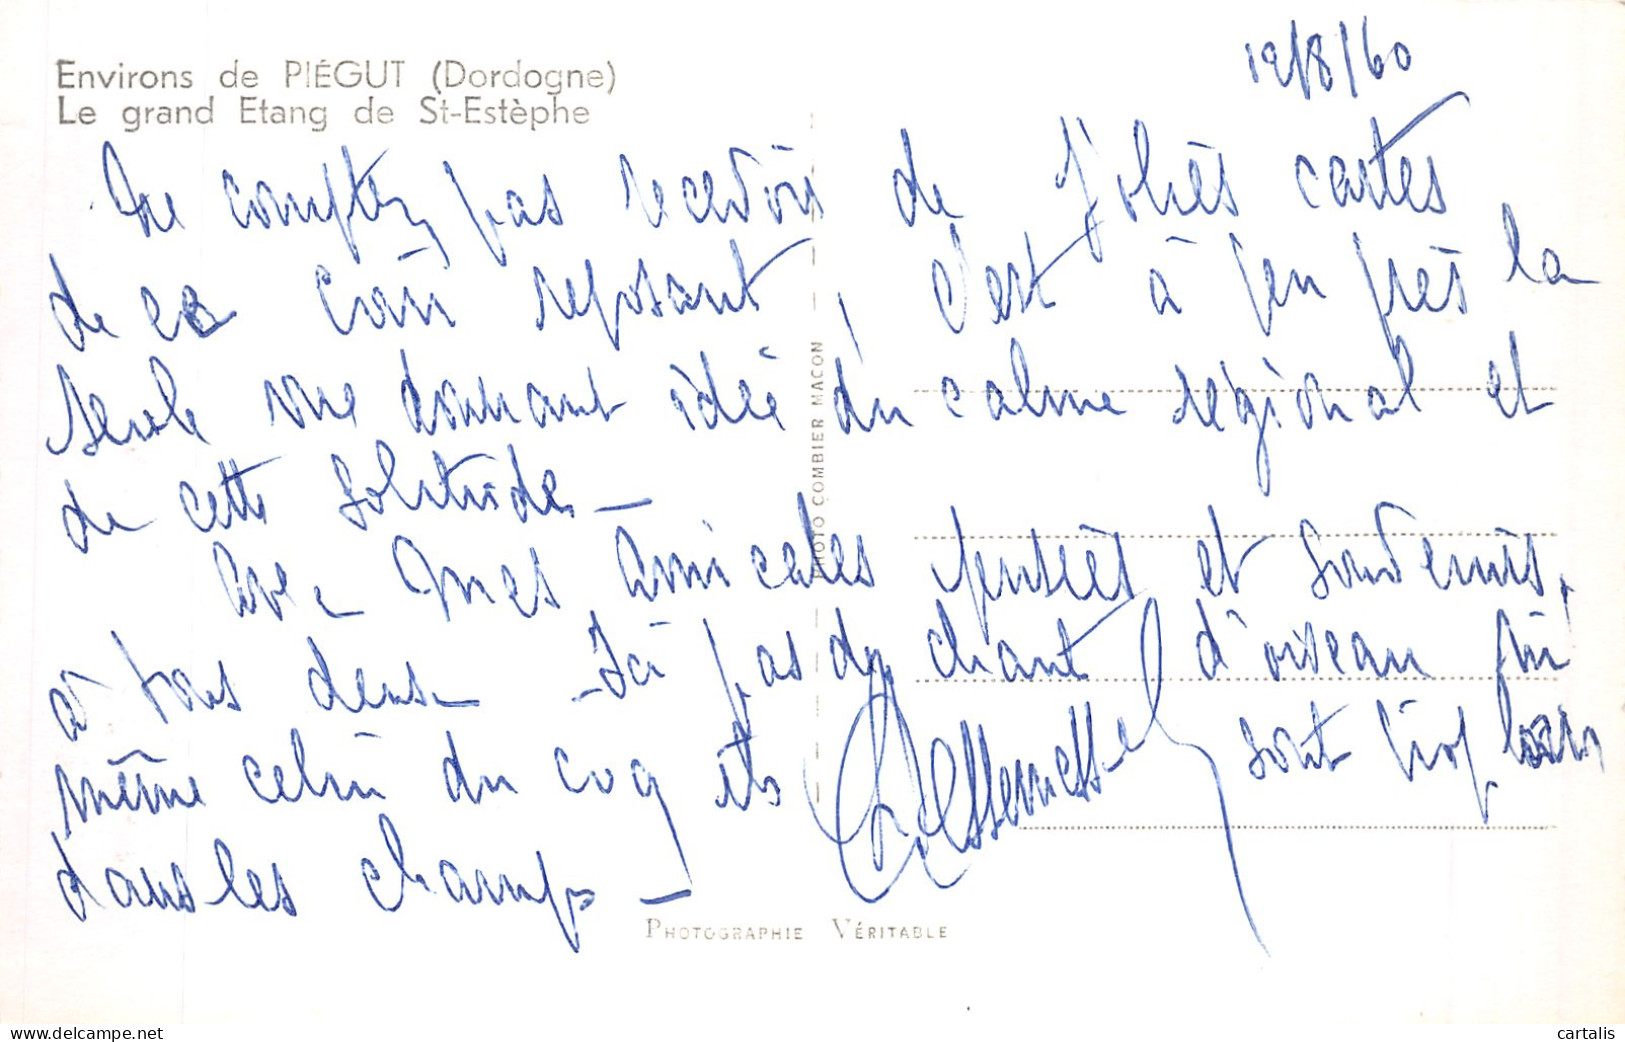 Environs de PIÉGUT (Dordogne)
Le grand Etang de St-Estèphe
12/8/60
Ne comptez pas recevoir de jolies cartes
de ce coin reposant, c'est à peu près la
seule vue donnant idée du calme régional et
de cette solitude -
Avec mes amicales pensées et souvenirs,
à tous deux - Ici pas de chant d'oiseau ni
même celui du coq ils sont trop loin
dans les champs -
PHOTO COMBIER MACON
PHOTOGRAPHIE VÉRITABLE
cartalis
www.delcampe.net